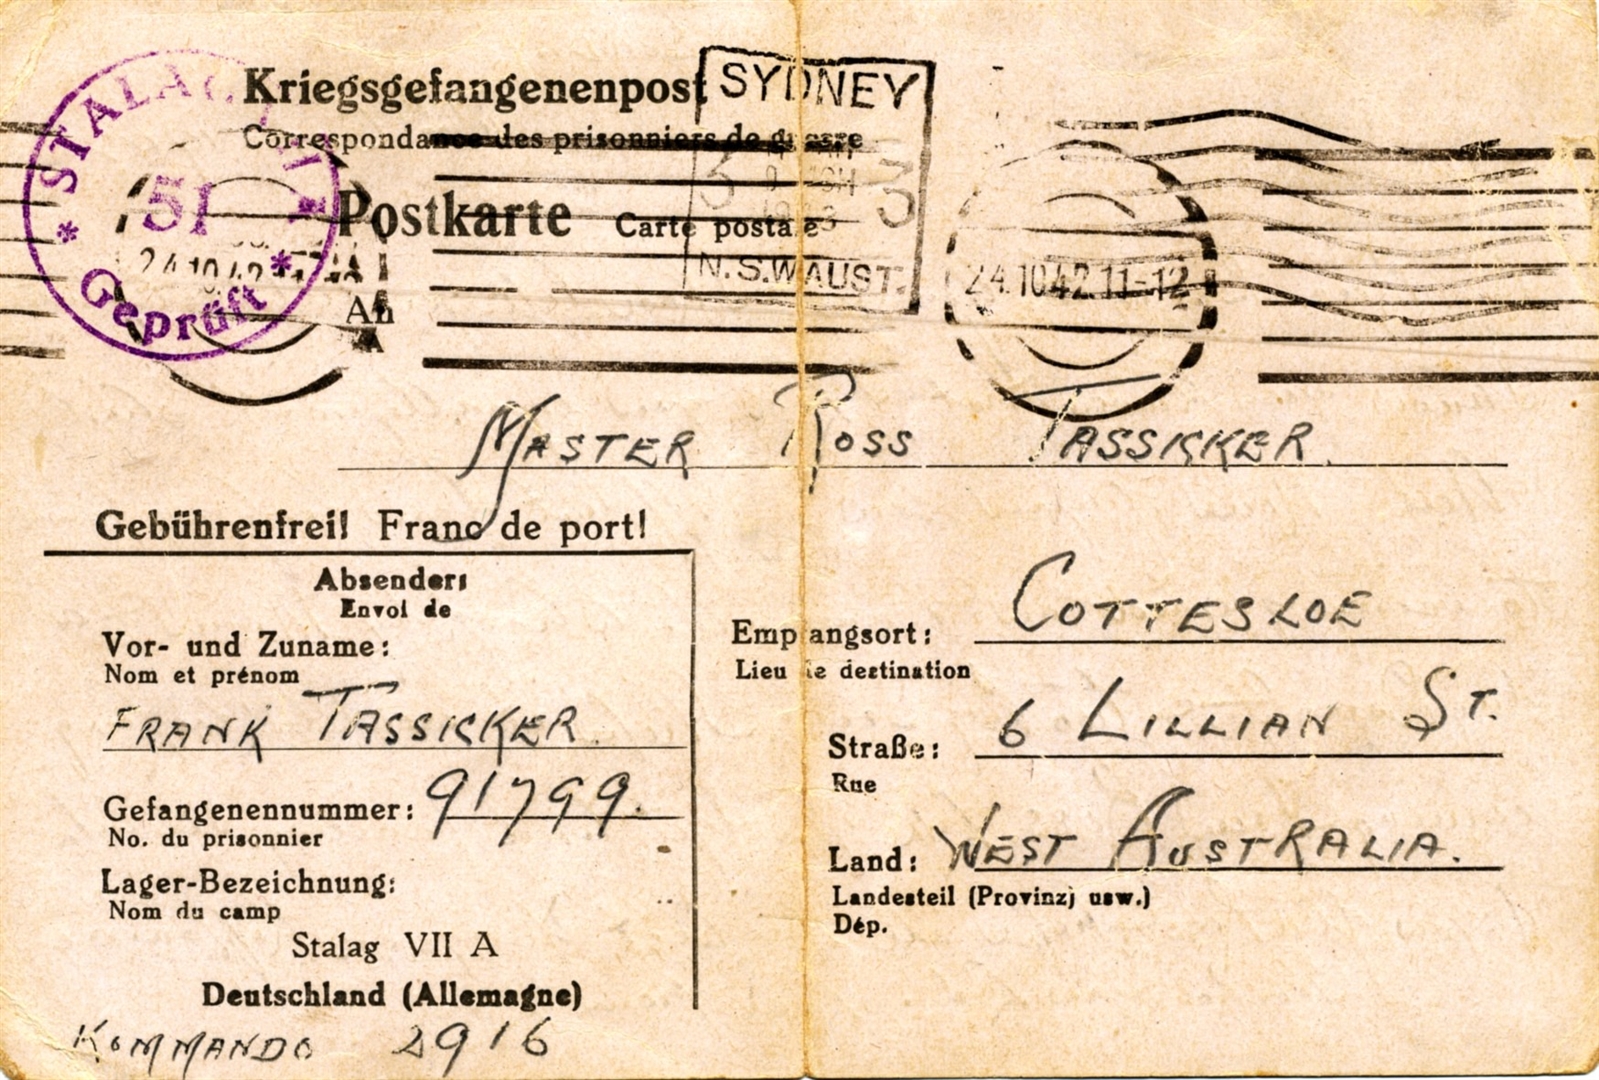 Kriegsgefangenenpost
Correspondance des prisonniers de guerre
Postkarte Carte postale
STALAG
51
Geprüft
24.10.42
SYDNEY
N.S.W. AUST.
24.10.42.11-12
An
A
MASTER ROSS TASSICKER
Gebührenfrei! Franc de port!
Absender:
Envoi de
Vor- und Zuname:
Nom et prénom
FRANK TASSICKER.
Gefangenennummer: 91799.
No. du prisonnier
Lager-Bezeichnung:
Nom du camp
Stalag VII A
Deutschland (Allemagne)
KOMMANDO 2916
Empfangsort: COTTESLOE
Lieu de destination
Straße: 6 LILLIAN ST.
Rue
Land: WEST AUSTRALIA.
Landesteil (Provinz usw.)
Dép.